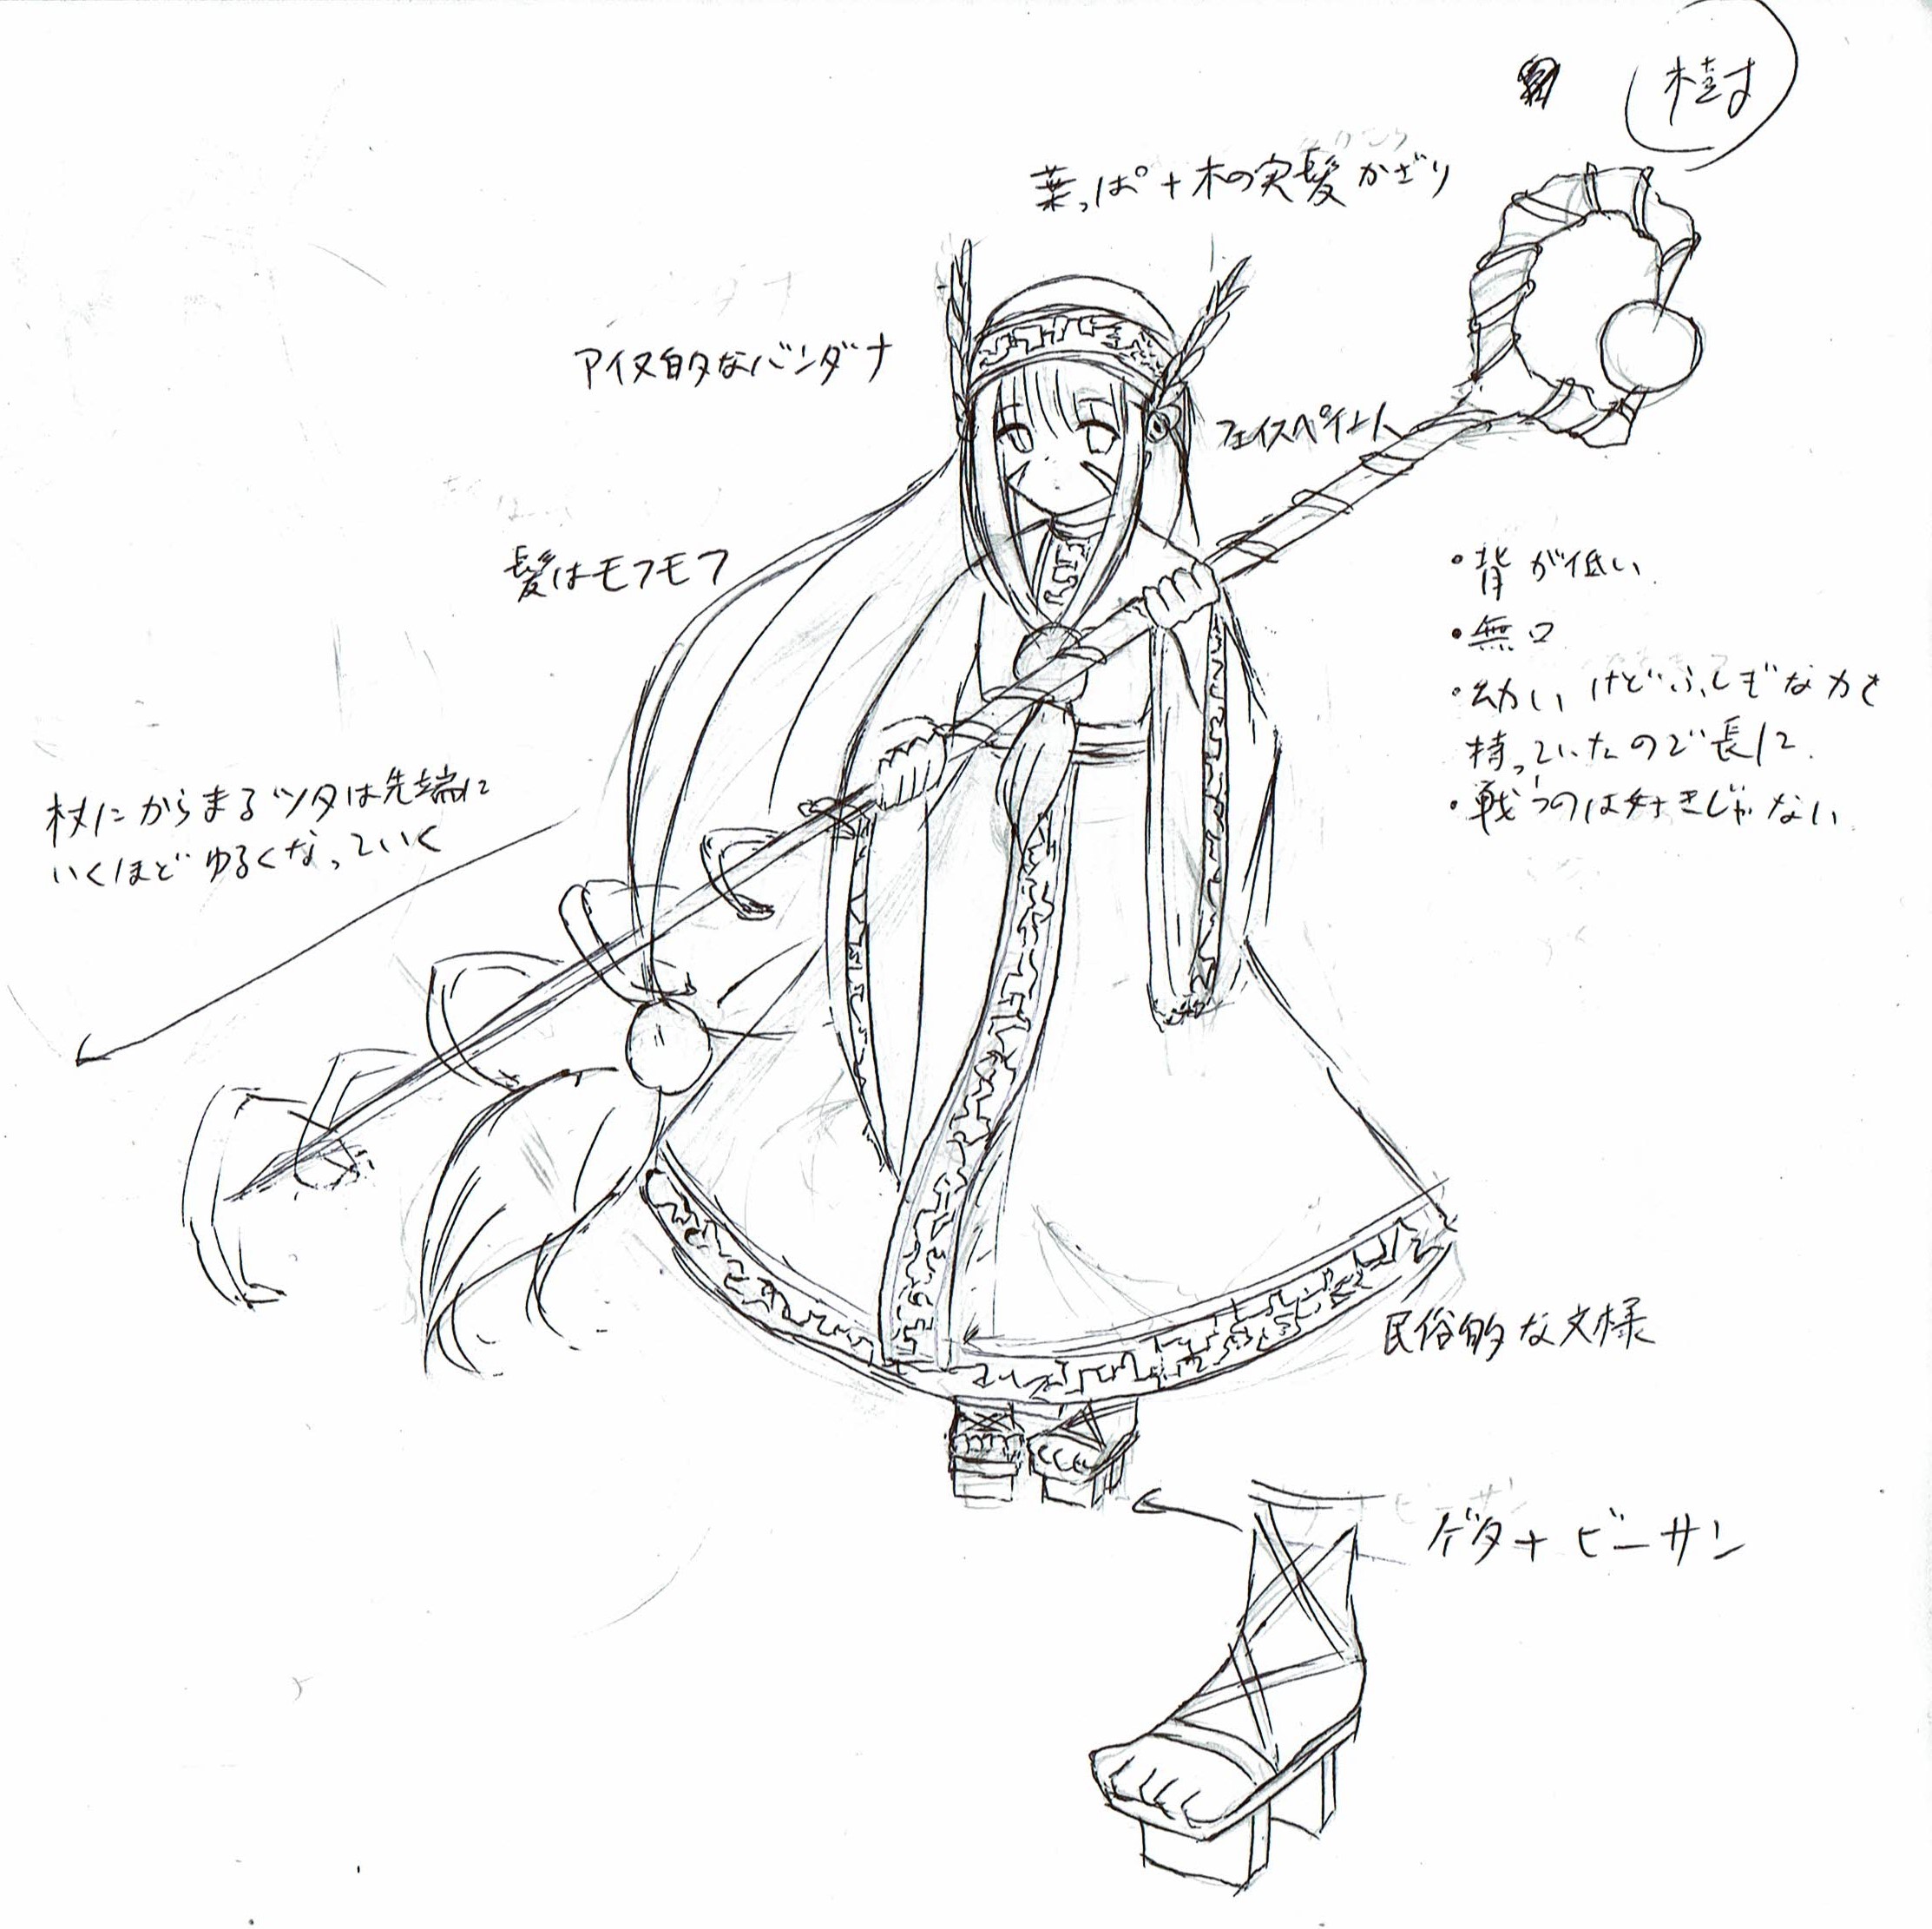 樹
葉っぱ+木の実髪かざり
アイヌ的なバンダナ
フェイスペイント
髪はモフモフ
・背が低い
・無口
・幼いけどふしぎな力を
持っていたので長に
・戦うのは好きじゃない
杖にからまるツタは先端に
いくほどゆるくなっていく
民俗的な文様
ゲタ+ビーサン